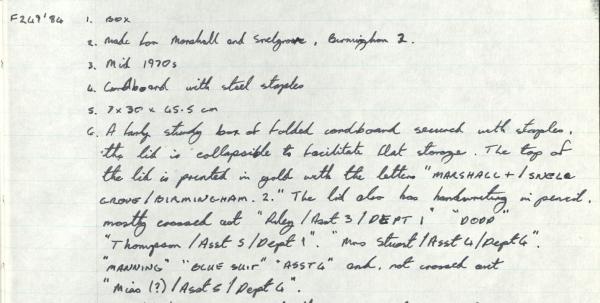 F249'84 1. BOX
2. Made for Marshall and Snelgrove, Birmingham 2.
3. Mid 1970s
4. Cardboard with steel staples
5. 7 x 30 x 45.5 cm
6. A fairly sturdy box of folded cardboard secured with staples.
the lid is collapsible to facilitate flat storage. The top of
the lid is printed in gold with the letters "MARSHALL + / SNELG
GROVE / BIRMINGHAM. 2." The lid also has handwriting in pencil.
mostly crossed out "Riley / Asst 3 / DEPT 1" "DODD"
"Thompson / Asst 5 / Dept 1". "Mrs Stuart / Asst 4 / Dept 4".
"MANNING" "BLUE SUIT" "ASST 4" and, not crossed out
"Miss (?) / Asst 5 / Dept 4".